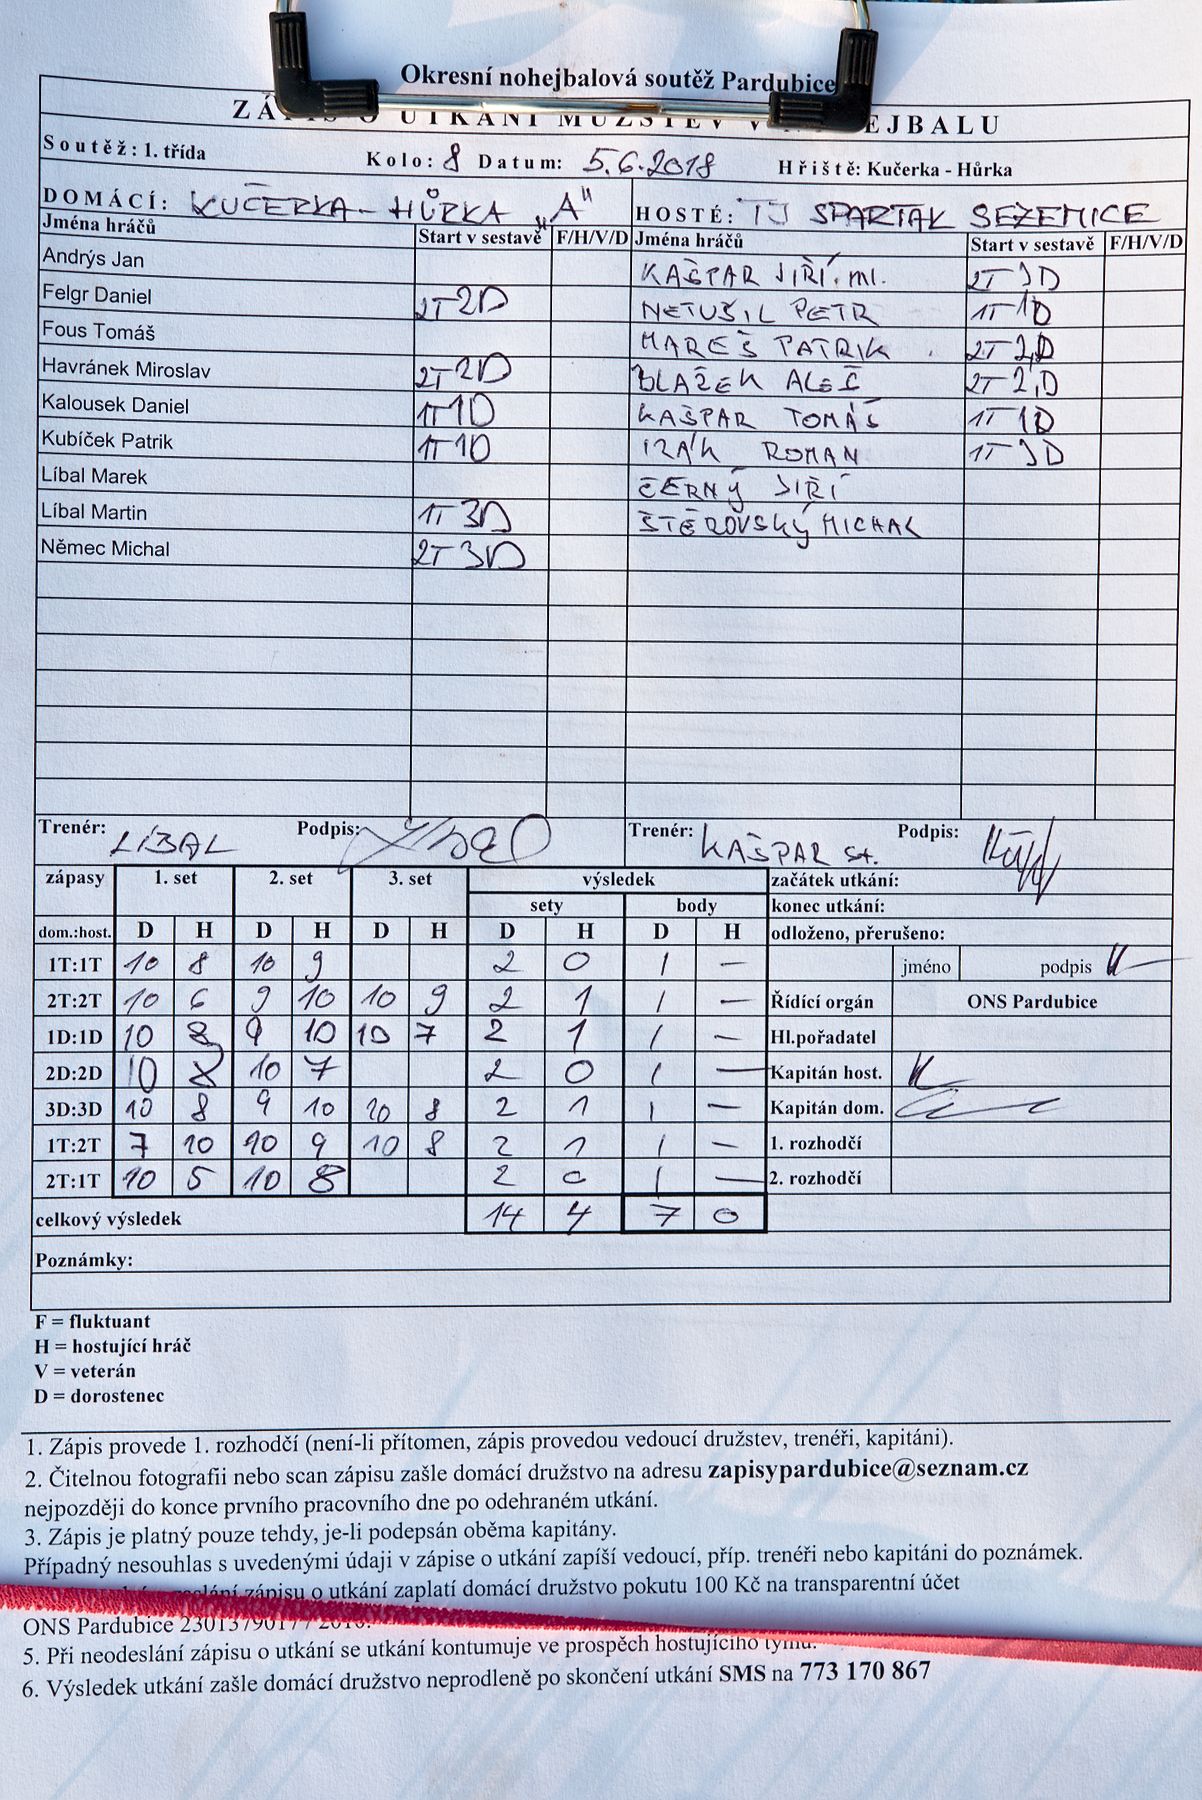 Okresní nohejbalová soutěž Pardubice
O UTKÁNÍ MUŽSTEV
Soutěž: 1. třída Kolo: 8 Datum: 5.6.2018 Hřiště: Kučerka - Hůrka
DOMÁCÍ: KUČERKA - HŮRKA „A" HOSTÉ: TJ SPARTAK SEZEMICE
Jména hráčů Start v sestavě F/H/V/D Jména hráčů Start v sestavě F/H/V/D
Andrýs Jan KAŠPAR JIŘÍ ml. 2T 3D
Felgr Daniel 2T 2D NETUŠIL PETR 1T 1D
Fous Tomáš MAREŠ PATRIK 2T 2D
Havránek Miroslav 2T 2D BLAŽEK ALEŠ 2T 2D
Kalousek Daniel 1T 1D KAŠPAR TOMÁŠ 1T 1D
Kubíček Patrik 1T 1D IZÁK ROMAN 1T 3D
Líbal Marek ČERNÝ JIŘÍ
Líbal Martin 1T 3D ŠTĚROVSKÝ MICHAL
Němec Michal 2T 3D
Trenér: LÍBAL Podpis: Trenér: KAŠPAR st. Podpis:
zápasy 1. set 2. set 3. set výsledek začátek utkání:
sety body konec utkání:
dom.:host. D H D H D H D H D H odloženo, přerušeno:
1T:1T 10 8 10 9 2 0 1 – jméno podpis
2T:2T 10 6 9 10 10 9 2 1 1 – Řídící orgán ONS Pardubice
1D:1D 10 8 9 10 10 7 2 1 1 – Hl.pořadatel
2D:2D 10 8 10 7 2 0 1 – Kapitán host.
3D:3D 10 8 9 10 10 8 2 1 1 – Kapitán dom.
1T:2T 7 10 10 9 10 8 2 1 1 – 1. rozhodčí
2T:1T 10 5 10 8 2 0 1 – 2. rozhodčí
celkový výsledek 14 4 7 0
Poznámky:
F = fluktuant
H = hostující hráč
V = veterán
D = dorostenec
1. Zápis provede 1. rozhodčí (není-li přítomen, zápis provedou vedoucí družstev, trenéři, kapitáni).
2. Čitelnou fotografii nebo scan zápisu zašle domácí družstvo na adresu zapisypardubice@seznam.cz
nejpozději do konce prvního pracovního dne po odehraném utkání.
3. Zápis je platný pouze tehdy, je-li podepsán oběma kapitány.
Případný nesouhlas s uvedenými údaji v zápise o utkání zapíší vedoucí, příp. trenéři nebo kapitáni do poznámek.
zápisu o utkání zaplatí domácí družstvo pokutu 100 Kč na transparentní účet
ONS Pardubice
5. Při neodeslání zápisu o utkání se utkání kontumuje ve prospěch hostujícího týmu.
6. Výsledek utkání zašle domácí družstvo neprodleně po skončení utkání SMS na 773 170 867